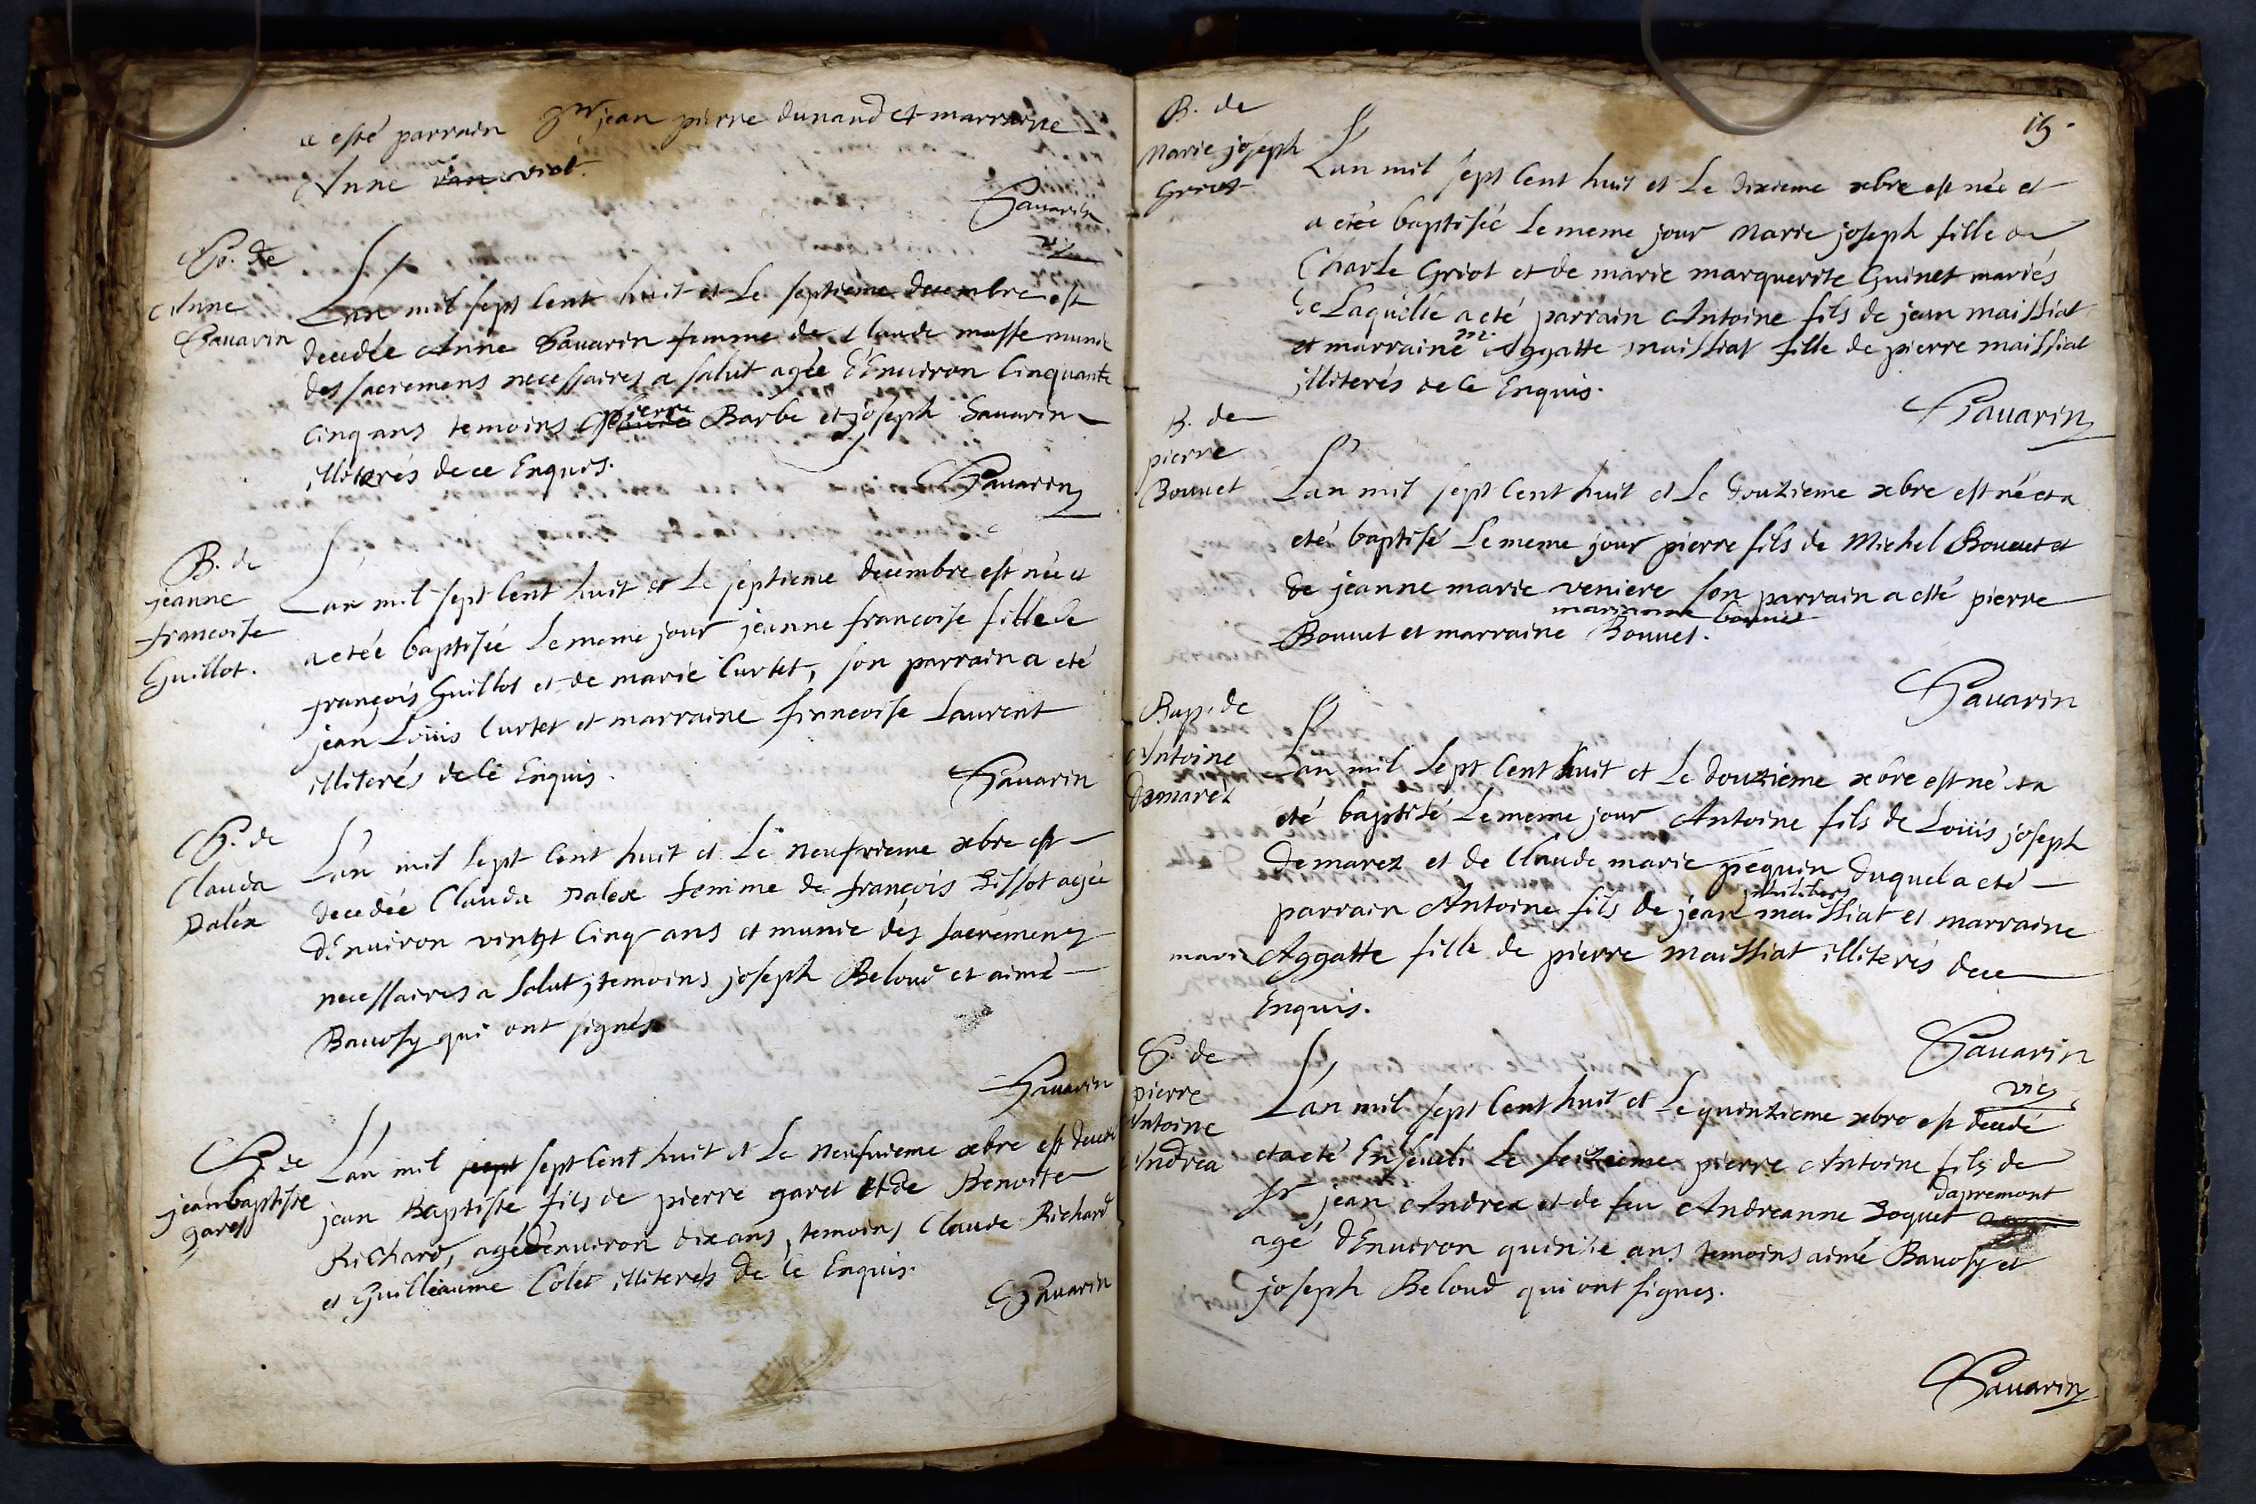 a esté parrain Sr jean pierre dunand et marraine
Anne viot.
Savarin
vic
So. de
Anne
Savarin
L'an mil sept Cent huit et Le septieme decembre est
decedée Anne Savarin femme de Claude masse munie
des sacremens necessaires a salut agée d'Environ Cinquante
Cinq ans temoins pierre Barbe et joseph Savarin
illiterés de ce Enquis.
Savarin
B. de
jeanne
francoise
Guillot.
L'an mil sept Cent huit et Le septieme decembre est née et
a etée baptisée Le meme jour jeanne francoise fille de
françois Guillot et de marie Curtet, son parrain a eté
jean Loüis Curtet et marraine francoise Laurent
illiterés de Ce Enquis.
Savarin
S. de
Clauda
Dalex
L'an mil sept Cent huit et Le neufvieme xbre est
decedée Clauda Dalex femme de françois Tissot agée
d'Environ vingt Cinq ans et munie des sacremens
necessaires a salut, temoins joseph Beloud et aimé
Bavosy qui ont signés
Savarin
S. de
jean baptiste
garet
L'an mil sept sept Cent huit et Le neufvieme xbre est decedé
jean Baptiste fils de pierre garet et de Benoite
Richard, agé d'environ dix ans, temoins Claude Richard
et Guilleaume Colet illiterés de Ce Enquis.
Savarin
15.
B. de
Marie joseph
Griot
L'an mil sept Cent huit et Le dixieme xbre est née et
a etée baptisée Le meme jour Marie joseph fille de
Charle Griot et de marie marguerite Guinet mariés
de Laquelle a eté parrain Antoine fils de jean maissiat
et marraine m. Aggatte maissiat fille de pierre maissiat
illiterés de Ce Enquis.
Savarin
B. de
pierre
Bouvet
L'an mil sept Cent huit et Le douzieme xbre est né et a
eté baptisé Le meme jour pierre fils de Michel Bouvet et
de jeanne marie veniere son parrain a esté pierre
Bouvet et marraine Bouvet.
Savarin
Bap. de
Antoine
demarez
L'an mil sept Cent huit et Le douzieme xbre est né et a
eté baptisé Le meme jour Antoine fils de Loüis joseph
demarez et de Claude marie pequin duquel a eté
parrain Antoine fils de jean philibert maissiat et marraine
marie Aggatte fille de pierre maissiat illiterés de ce
Enquis.
Savarin
vic
S. de
pierre
Antoine
Andrea
L'an mil sept Cent huit et Le quinzieme xbre est decedé
et a eté Enseveli Le seizieme pierre Antoine fils de
Sr jean Andrea et de feu Andreanne Boquet dapremont
agé d'Environ quinze ans temoins aimé Bavosy et
joseph Beloud qui ont signes.
Savarin